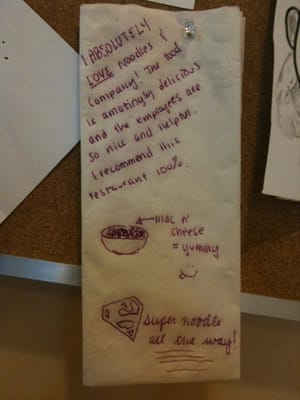 I ABSOLUTELY
LOVE Noodles &
Company! The food
is amazingly delicious
and the employees are
so nice and helpful.
I recommend this
restaurant 100%.
mac n'
cheese
= yummy
super noodle
all the way!